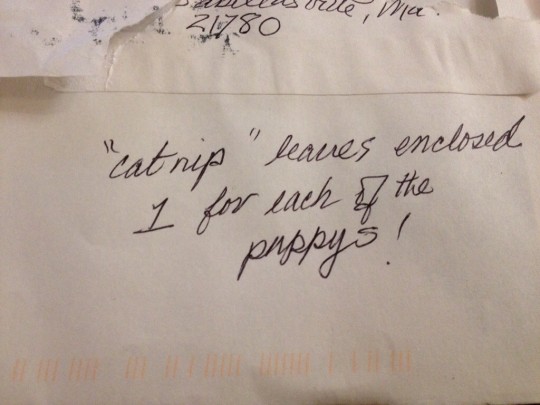 Sabillasville, Md.
21780
"catnip" leaves enclosed
1 for each of the
puppys!